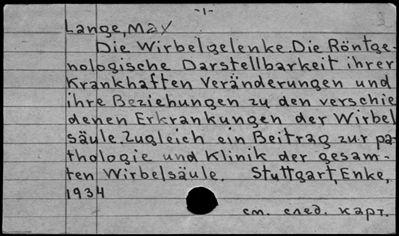 -1-
Lange, May
Die Wirbelgelenke. Die Röntge-
nologische Darstellbarkeit ihrer
Krankhaften Veränderungen und
ihre Beziehungen zu den verschie
denen Erkrankungen der Wirbel
säule. Zugleich ein Beitrag zur pa-
thologie und Klinik der gesam-
ten Wirbelsäule. Stuttgart, Enke,
1934
см. след. карт.